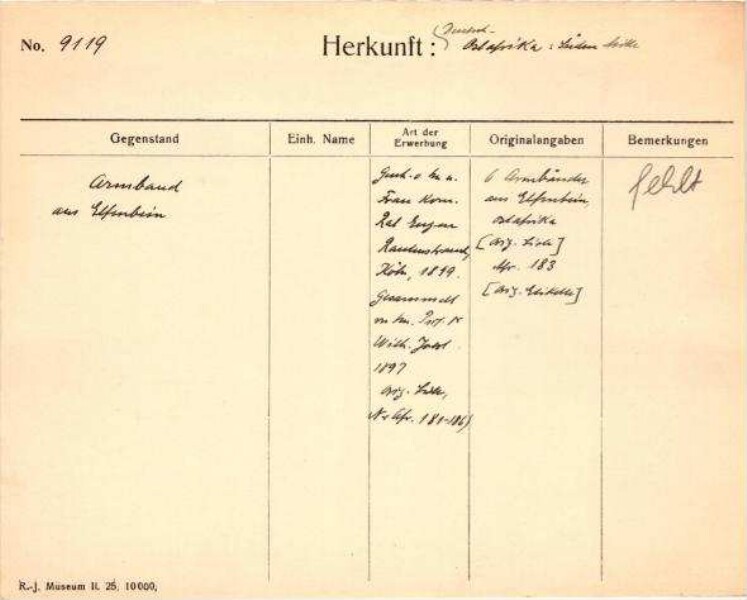 No. 9119
Herkunft: Deutsch-
Ostafrika: Süden
Gegenstand
Einh. Name
Art der
Erwerbung
Originalangaben
Bemerkungen
Armband
aus Elfenbein
Frau Kom.
Rat Eugen
Rautenstrauch,
Köln, 1899.
Gesammelt
Prof. Dr
Wilh. Joest
1897
Orig. Liste,
Nr Afr. 181-186)
6 Armbänder
aus Elfenbein,
Ostafrika
[Orig. Liste]
Afr. 183
[Orig. Etikette]
fehlt
R.-J. Museum II. 25. 10000,